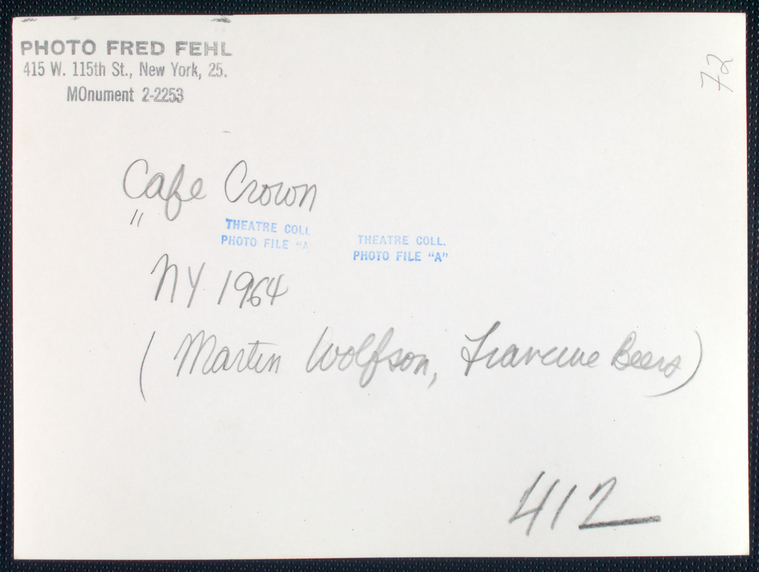 PHOTO FRED FEHL
415 W. 115th St., New York, 25.
MOnument 2-2253
72
Cafe Crown
"
THEATRE COLL.
PHOTO FILE "A
THEATRE COLL.
PHOTO FILE "A"
NY 1964
(Martin Wolfson, Beers)
412